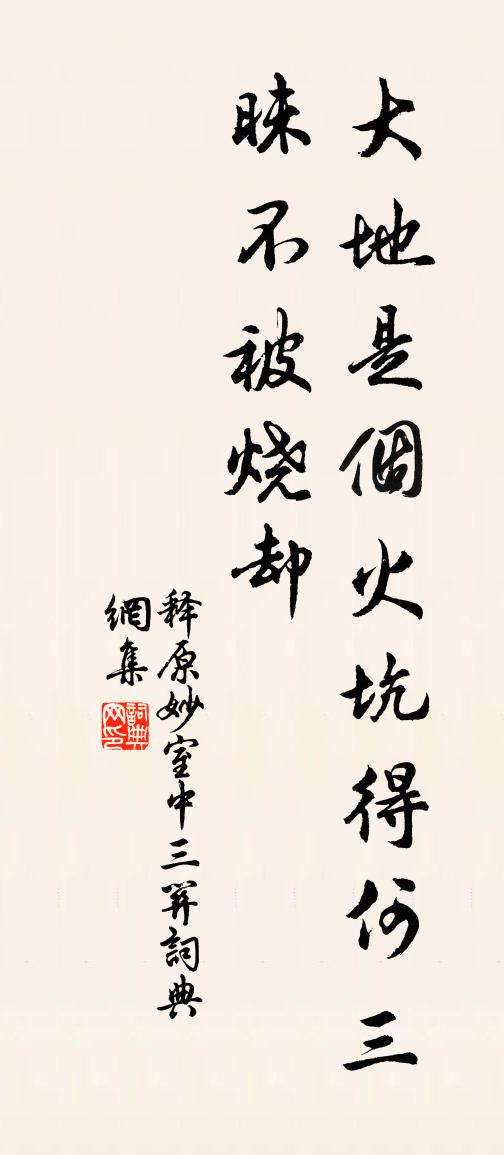 大地是個火坑得何三
昧不被烧却
释原妙室中三关詞典
網集
詞典
网印